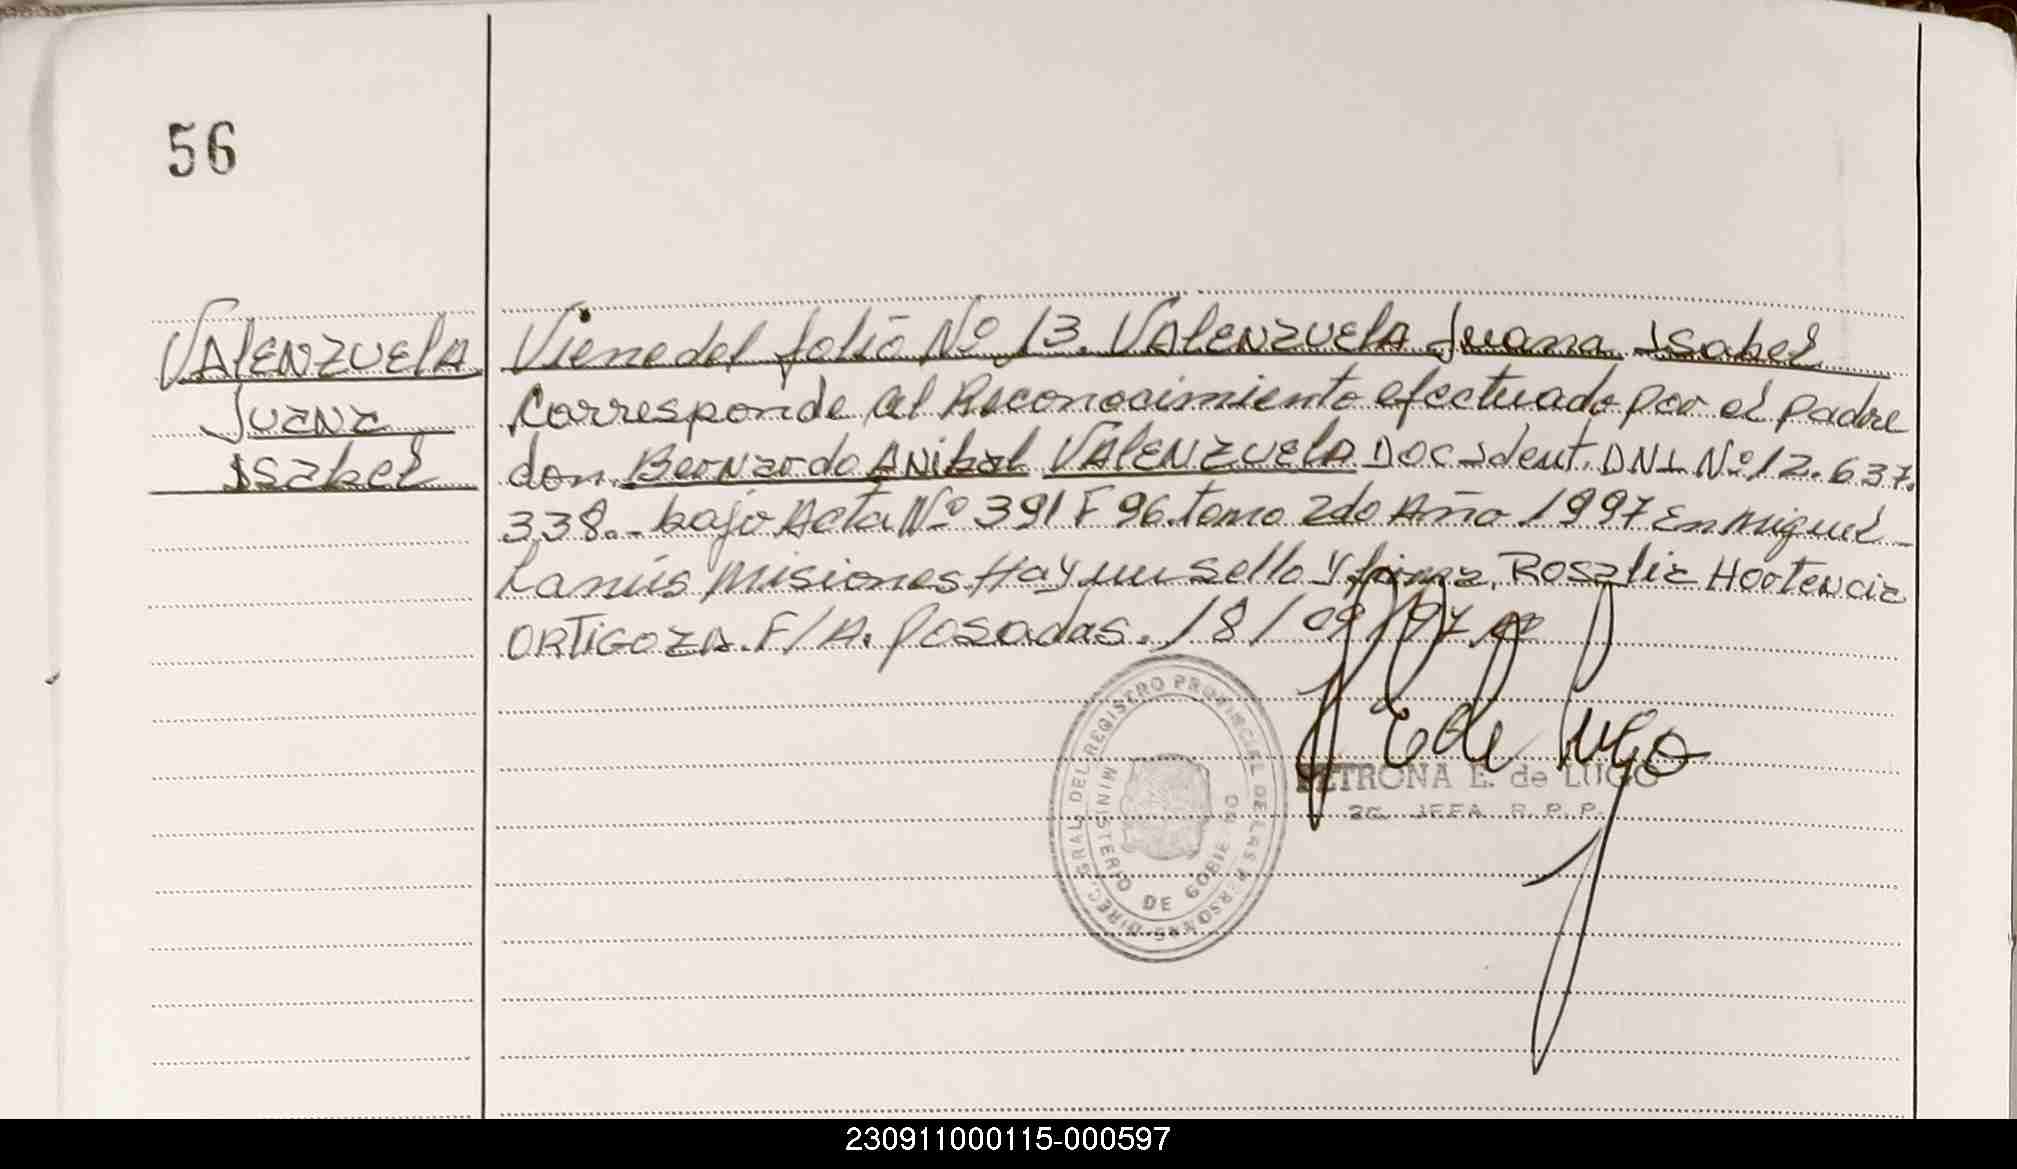 56
VALENZUELA
Juana
Isabel
Viene del folio Nº 13. VALENZUELA Juana Isabel
Corresponde al Reconocimiento efectuado por el padre
don Bernardo ANibal VALENZUELA Doc ident. DNI Nº 12.637.
338.- bajo Acta Nº 391 F 96. tomo 2do Año 1997 En Miguel
Lanús Misiones Hay un sello y firma. Rosalia Hortencia
ORTIGOZA. F/A. Posadas. 18/09/97
DIREC. GRAL. DEL REGISTRO PROVINCIAL DE LAS PERSONAS
MINISTERIO DE GOBIERNO
E de Lugo
PETRONA E. de LUGO
2a. JEFA R.P.P.
230911000115-000597